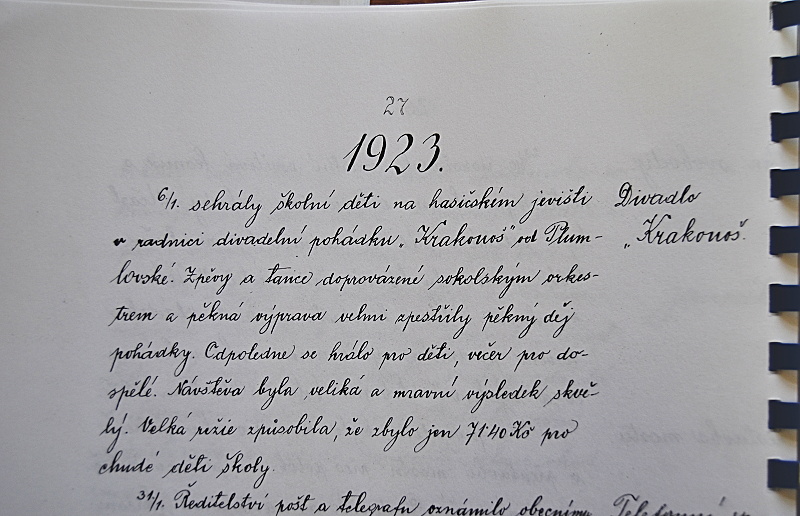 27
1923.
6/1. sehrály školní děti na hasičském jevišti
v radnici divadelní pohádku „Krakonoš" od Plum-
lovské. Zpěvy a tance doprovázené sokolským orkes-
trem a pěkná výprava velmi zpestřily pěkný děj
pohádky. Odpoledne se hrálo pro děti, večer pro do-
spělé. Návštěva byla veliká a mravní výsledek skvě-
lý. Velká režie způsobila, že zbylo jen 71·40 Kč pro
chudé děti školy.
31/1. Ředitelství pošt a telegrafu oznámilo obecnímu
Divadlo
„Krakonoš.